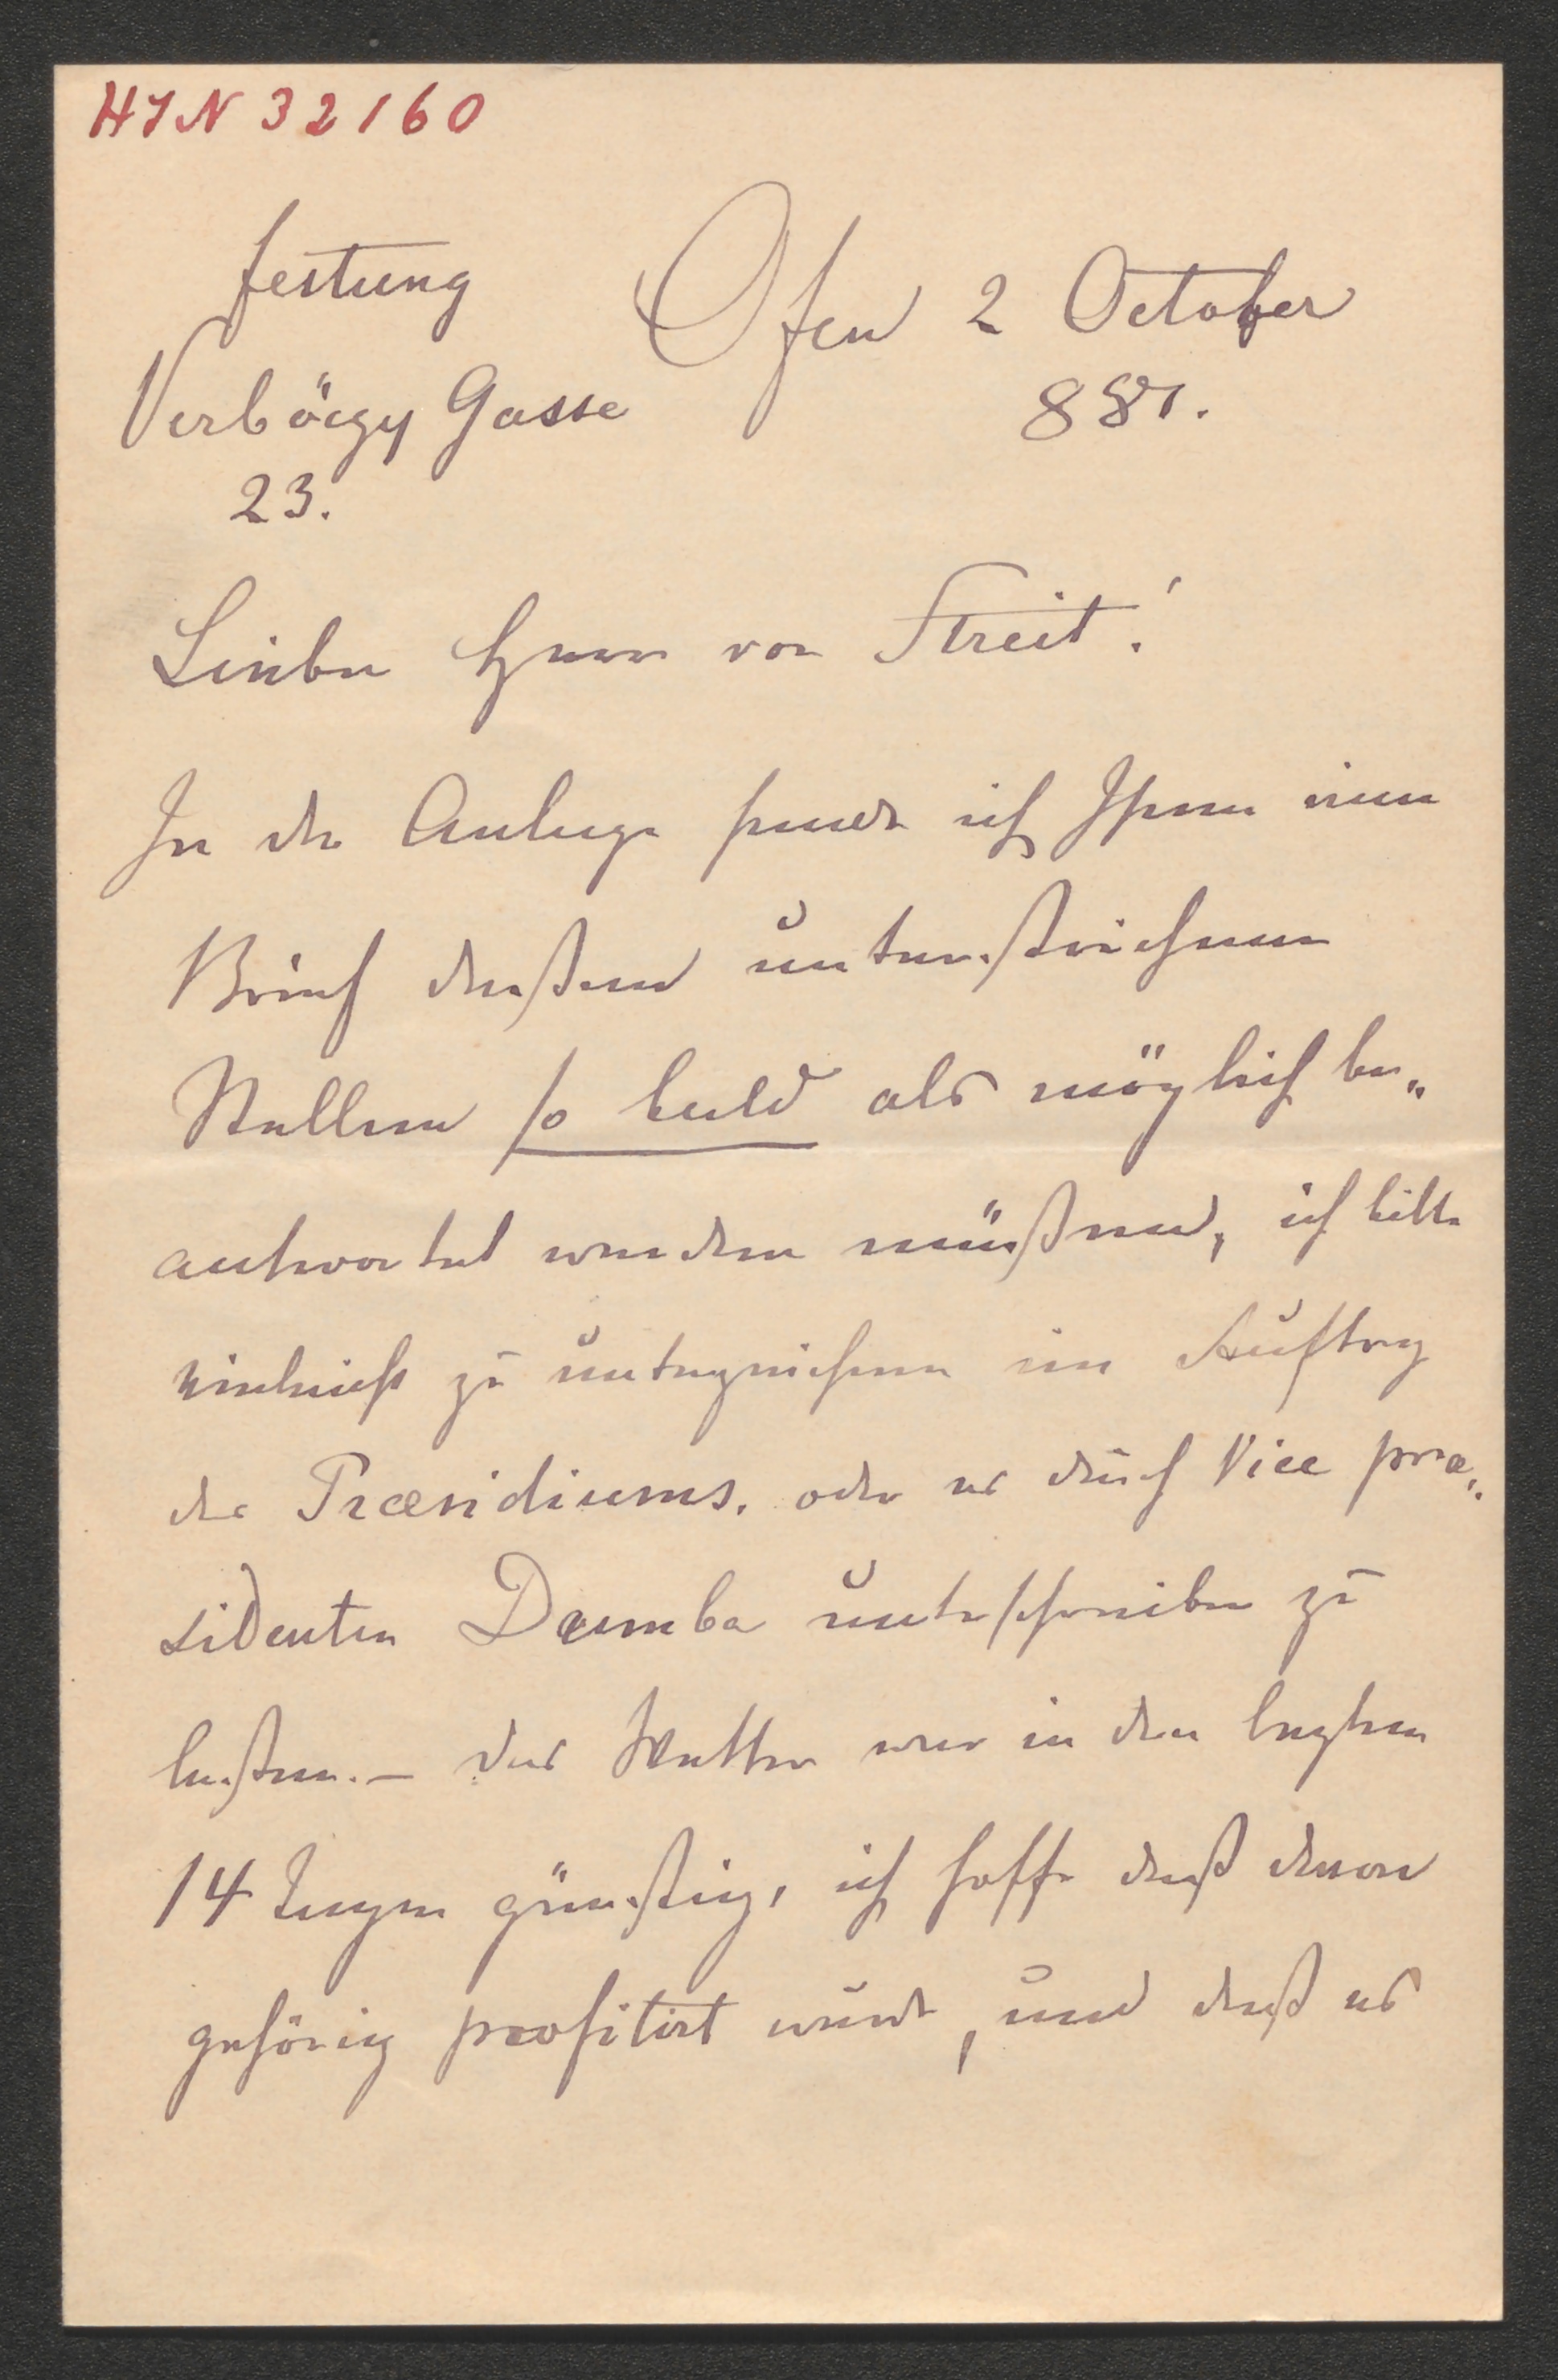 HIN 32160
Festung Ofen 2 October
Verböczy Gasse 881.
23.
Lieber Herr von Streit!
In der Anlage sende ich Ihnen einen
Brief deßen unterstrichene
Stellen so bald als möglich be„
antwortet werden müßen, ich bitte
vielleicht zu unterzeichnen im Auftrag
des Præsidiums. oder es durch Vice præ„
sidenten Dumba unterschreiben zu
laßen. – Das Wetter war in den letzten
14 Tagen günstig, ich hoffe daß davon
gehörig profitirt wurde, und daß es